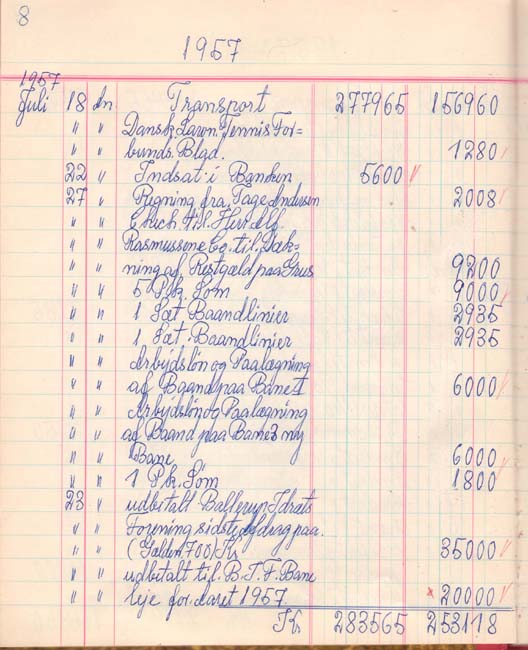 8
1957
1957
Juli 18 dn Transport 277965 156960
" " Dansk Lawn Tennis For=
" " bunds Blad. 1280
22 " Indsat i Banken 5600
27 " Regning fra Tage Andersen 2008
" " Check til
" " Rasmussen & Co. til Dæk-
" " ning af Restgæld paa Grus 9200
" " 5 Pk. Søm 9000
" " 1 Sæt Baandlinier 2935
" " 1 Sæt Baandlinier 2935
" " Arbejdsløn og Paalægning
" " af Baand paa Bane 1 6000
" " Arbejdsløn og Paalægning
" " af Baand paa Bane 3 ny
" " Bane 6000
" " 1 Pk. Søm 1800
23 " udbetalt Ballerup Idræts
" " Forening sidste afdrag paa.
" " (Gælden 700) Kr 35000
" " udbetalt til B.T.F. Bane
" " leje for aaret 1957 20000
Kr. 283565 253118